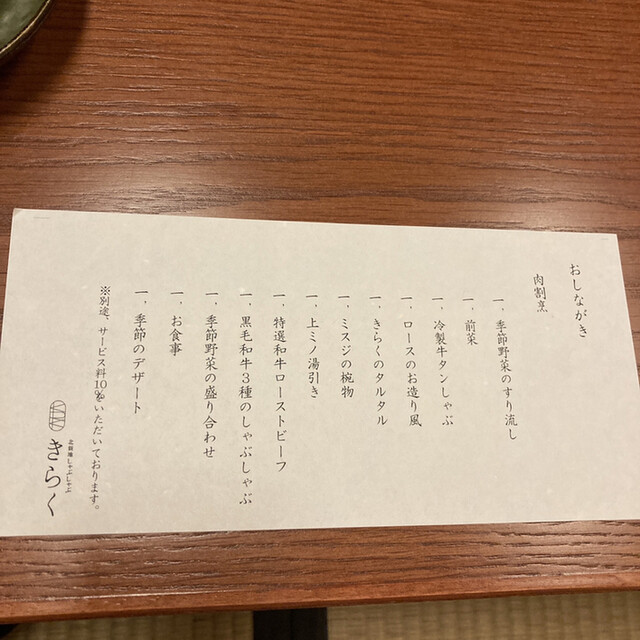 おしながき
肉割烹
一、季節野菜のすり流し
一、前菜
一、冷製牛タンしゃぶ
一、ロースのお造り風
一、きらくのタルタル
一、ミスジの椀物
一、上ミノ湯引き
一、特選和牛ローストビーフ
一、黒毛和牛3種のしゃぶしゃぶ
一、季節野菜の盛り合わせ
一、お食事
一、季節のデザート
※別途、サービス料10%いただいております。
北新地しゃぶしゃぶ
きらく